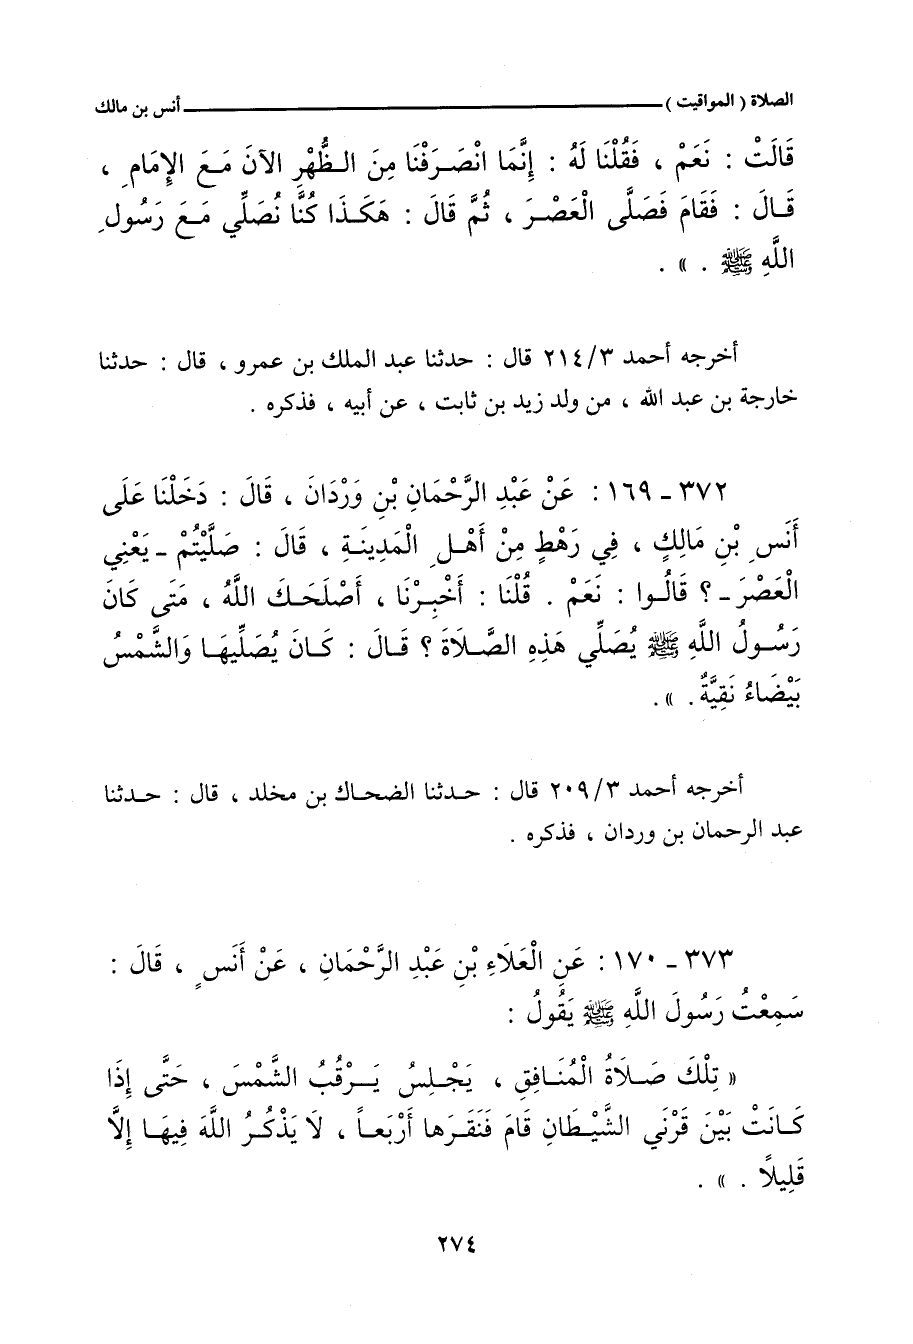 الصلاة ( المواقيت ) ــــــــــــــــــــ أنس بن مالك
قَالَتْ : نَعَمْ ، فَقُلْنَا لَهُ : إِنَّمَا انْصَرَفْنَا مِنَ الظُّهْرِ الآنَ مَعَ الإِمَامِ ،
قَالَ : فَقَامَ فَصَلَّى الْعَصْرَ ، ثُمَّ قَالَ : هَكَذَا كُنَّا نُصَلِّي مَعَ رَسُولِ
اللَّهِ ﷺ . » .
أخرجه أحمد ٢١٤/٣ قال : حدثنا عبد الملك بن عمرو ، قال : حدثنا
خارجة بن عبد الله ، من ولد زيد بن ثابت ، عن أبيه ، فذكره .
٣٧٢ - ١٦٩ : عَنْ عَبْدِ الرَّحْمَانِ بْنِ وَرْدَانَ ، قَالَ : دَخَلْنَا عَلَى
أَنَسِ بْنِ مَالِكٍ ، فِي رَهْطٍ مِنْ أَهْلِ الْمَدِينَةِ ، قَالَ : صَلَّيْتُمْ - يَعْنِي
الْعَصْرَ - ؟ قَالُوا : نَعَمْ . قُلْنَا : أَخْبِرْنَا ، أَصْلَحَكَ اللَّهُ ، مَتَى كَانَ
رَسُولُ اللَّهِ ﷺ يُصَلِّي هَذِهِ الصَّلَاةَ ؟ قَالَ : كَانَ يُصَلِّيهَا وَالشَّمْسُ
بَيْضَاءُ نَقِيَّةٌ . » .
أخرجه أحمد ٢٠٩/٣ قال : حدثنا الضحاك بن مخلد ، قال : حدثنا
عبد الرحمان بن وردان ، فذكره .
٣٧٣ - ١٧٠ : عَنِ الْعَلَاءِ بْنِ عَبْدِ الرَّحْمَانِ ، عَنْ أَنَسٍ ، قَالَ :
سَمِعْتُ رَسُولَ اللَّهِ ﷺ يَقُولُ :
« تِلْكَ صَلَاةُ الْمُنَافِقِ ، يَجْلِسُ يَرْقُبُ الشَّمْسَ ، حَتَّى إِذَا
كَانَتْ بَيْنَ قَرْنَي الشَّيْطَانِ قَامَ فَنَقَرَها أَرْبَعاً ، لَا يَذْكُرُ اللَّهَ فِيهَا إِلَّا
قَلِيلاً . » .
٢٧٤